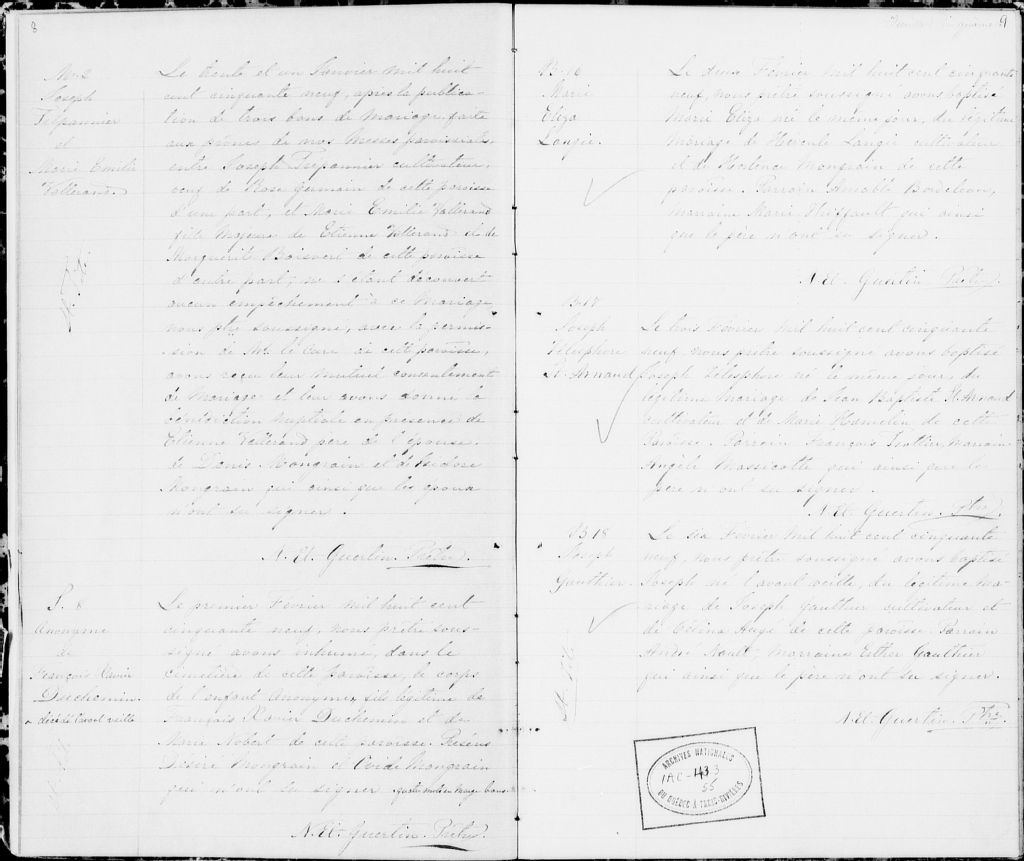 8
M. 2
Joseph
Trépannier
et
Marie Emilie
Vallerand.
Le trente et un Janvier mil huit
cent cinquante neuf, après la publica-
tion de trois bans de mariage, faite
aux prônes de nos Messes paroissiales,
entre Joseph Trépannier cultivateur,
veuf de Rose Germain de cette paroisse
d'une part, et Marie Emilie Vallerand
fille majeure de Etienne Vallerand et de
Marguerite Boisvert de cette paroisse
d'autre part, ne s'étant découvert
aucun empêchement à ce mariage,
nous ptre soussigné, avec la permis-
sion de Mr. le Curé de cette paroisse,
avons reçu leur mutuel consentement
de Mariage et leur avons donné la
bénédiction nuptiale en présence de
Etienne Vallerand père de l'épouse,
de Denis Mongrain et de Isidore
Mongrain qui ainsi que les époux
n'ont su signer.
N. Et. Guertin. Prêtre.
S. 8
Anonyme
de
François Xavier
Duchemin.
décédé l'avant veille
Le premier Février mil huit cent
cinquante neuf, nous prêtre sous-
signé avons inhumé, dans le
cimetière de cette paroisse, le corps
de l'enfant Anonyme, fils légitime de
François Xavier Duchemin et de
Marie Nobert de cette paroisse. Présens
Désiré Mongrain et Ovide Mongrain
qui n'ont su signer. quatre mots en marge bons
N. Et. Guertin. Prêtre.
9
B. 16
Marie
Eliza
Langie.
Le deux Février mil huit cent cinquante
neuf, nous prêtre soussigné avons baptisé
Marie Eliza née le même jour, du légitime
mariage de Hercule Langie cultivateur
et de Hortence Mongrain de cette
paroisse. Parrain Amable Bordeleau,
marraine Marie Thiffault qui ainsi
que le père n'ont su signer.
N. Et. Guertin. Prêtre.
B. 17
Joseph
Télesphore
St. Arnaud
Le trois Février mil huit cent cinquante
neuf nous prêtre soussigné avons baptisé
Joseph Télesphore né le même jour, du
légitime mariage de Jean Baptiste St. Arnaud
cultivateur et de Marie Hamelin de cette
paroisse. Parrain François Trottier, Marraine
Angèle Massicotte qui ainsi que le
père n'ont su signer.
N. Et. Guertin. Ptre.
B. 18
Joseph
Gauthier.
Le six Février mil huit cent cinquante
neuf, nous prêtre soussigné avons baptisé
Joseph né l'avant veille, du légitime ma-
riage de Joseph Gauthier cultivateur et
de Célina Augé de cette paroisse. Parrain
André Nault, Marraine Esther Gauthier
qui ainsi que le père n'ont su signer.
N. Et. Guertin. Ptre.
ARCHIVES NATIONALES
1AC-433
55
DU QUÉBEC À TROIS-RIVIÈRES